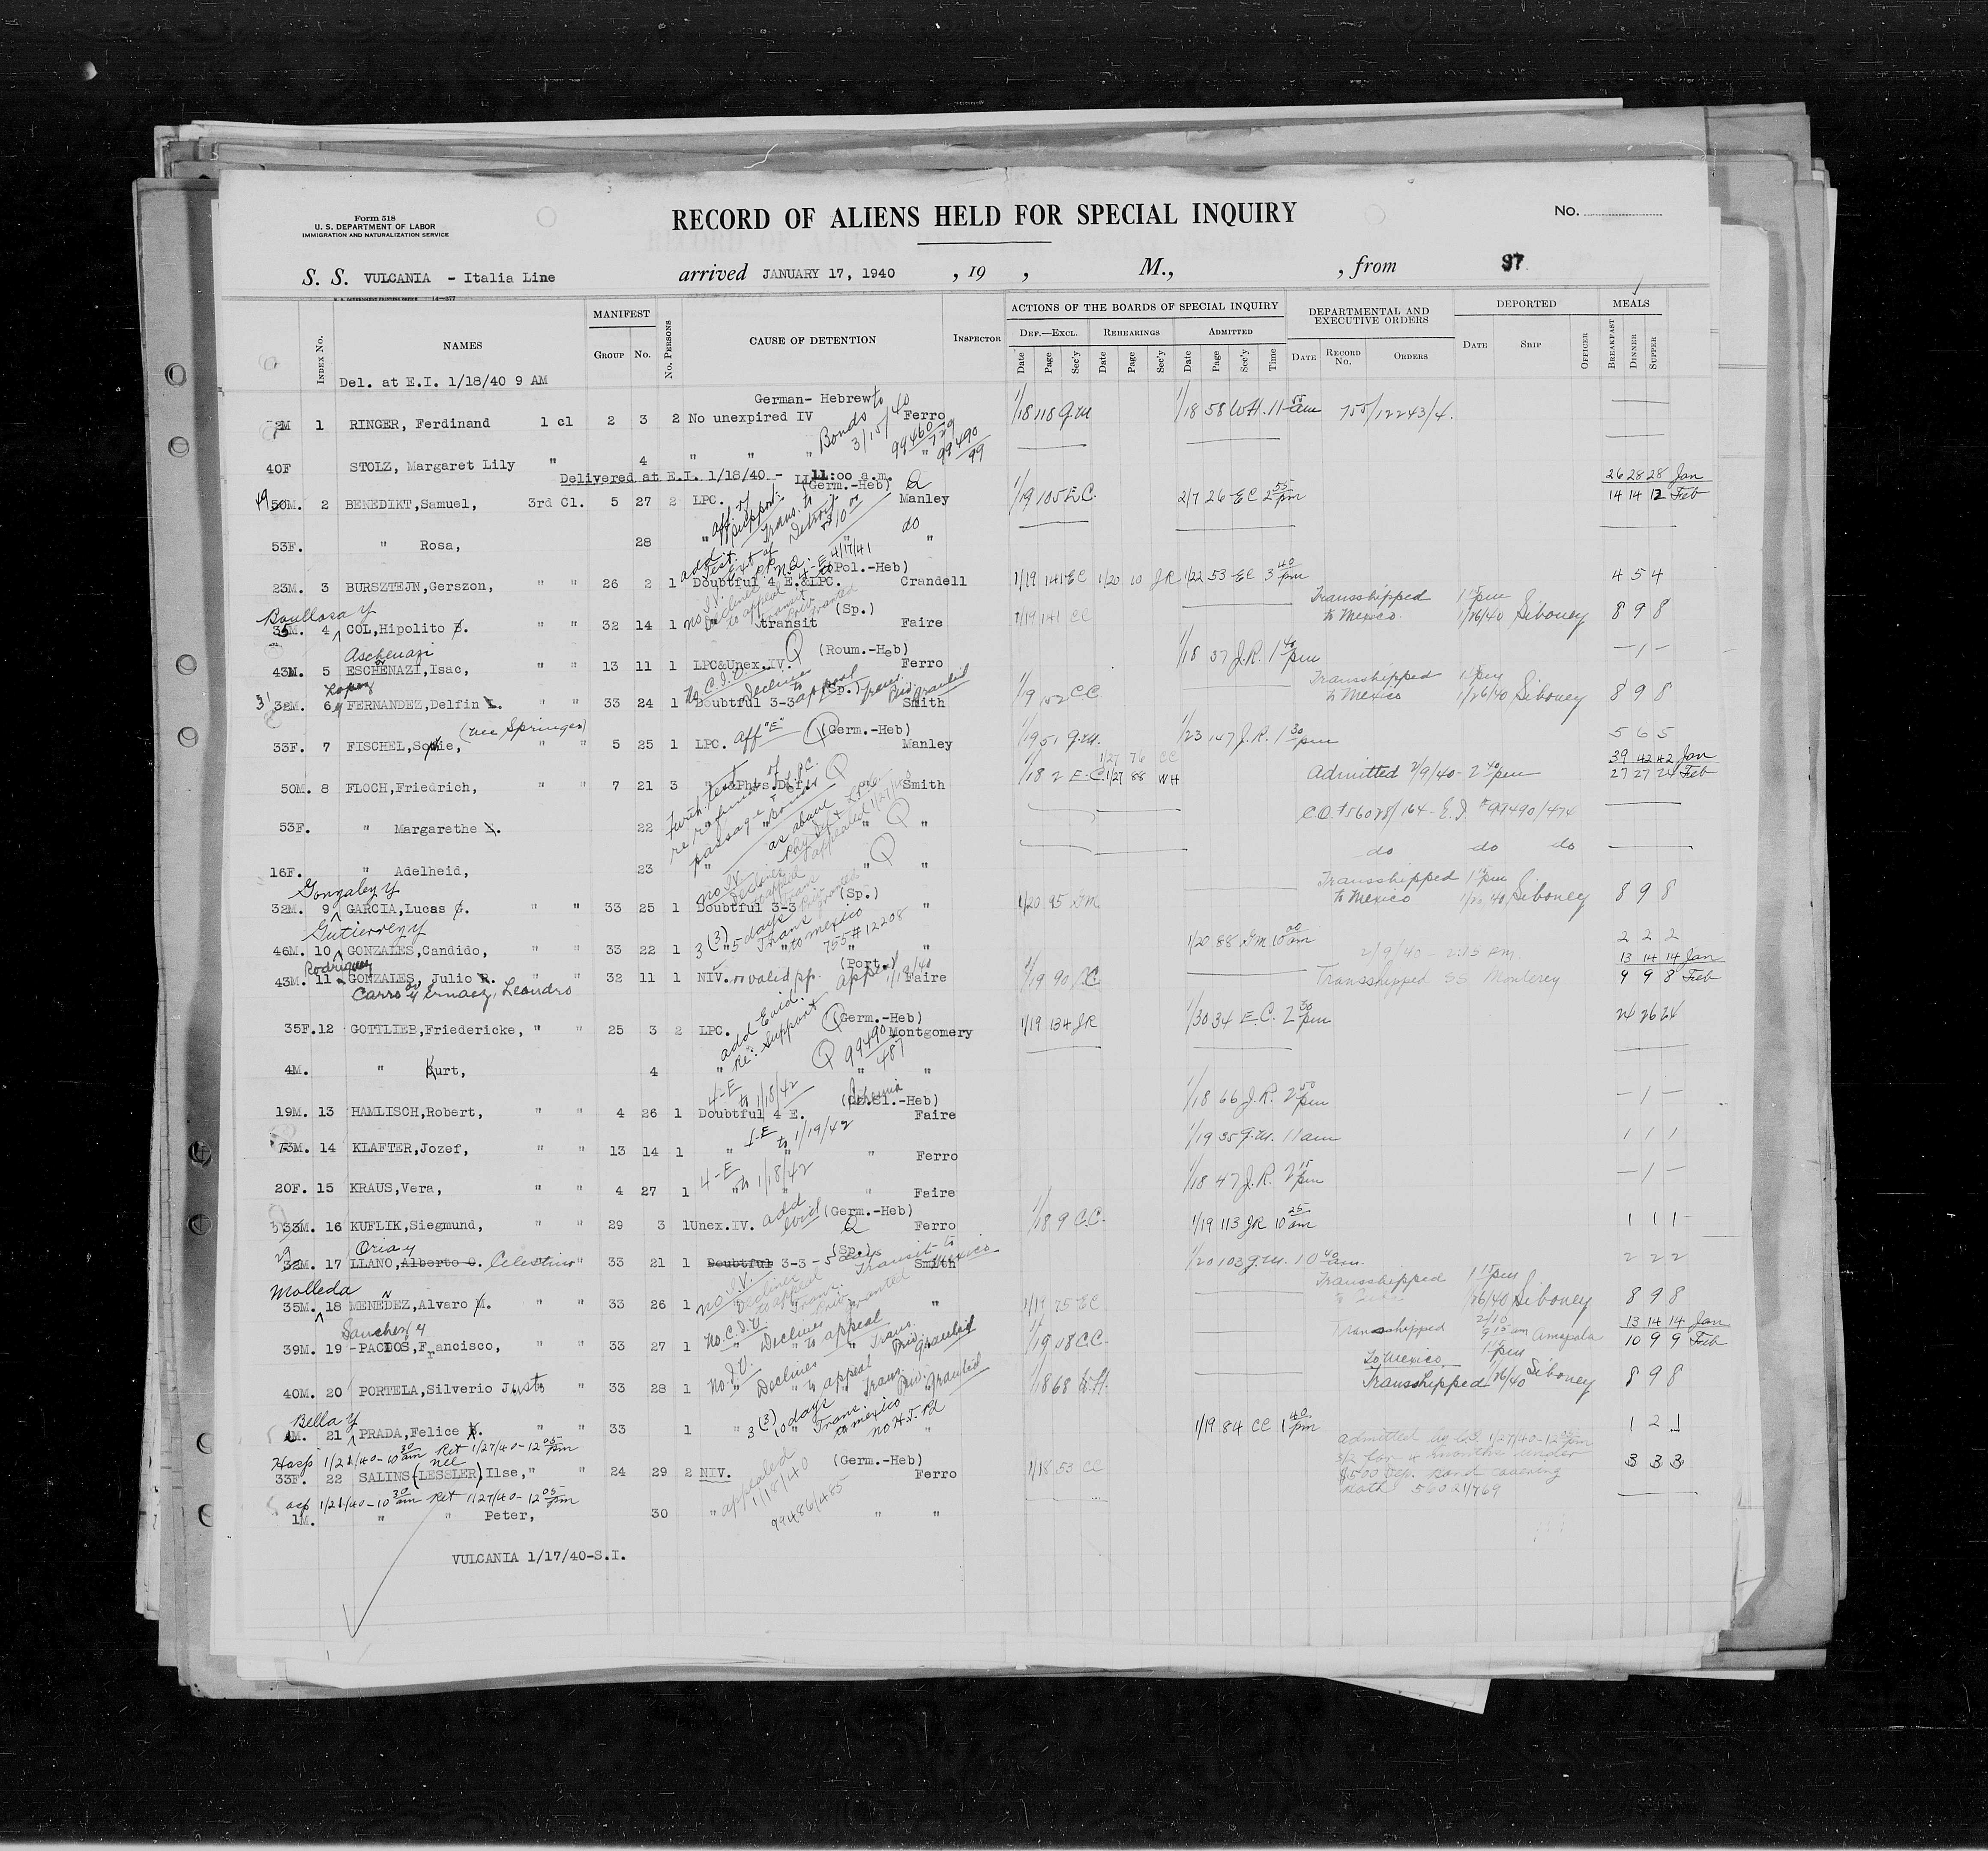 Form 518
U. S. DEPARTMENT OF LABOR
IMMIGRATION AND NATURALIZATION SERVICE
RECORD OF ALIENS HELD FOR SPECIAL INQUIRY
No.
S. S. VULCANIA - Italia Line arrived JANUARY 17, 1940 , 19 , M., , from 97
U. S. GOVERNMENT PRINTING OFFICE 14-377
Index No. NAMES MANIFEST Group No. No. Persons CAUSE OF DETENTION Inspector ACTIONS OF THE BOARDS OF SPECIAL INQUIRY Def.—Excl. Date Page Sec'y Rehearings Date Page Sec'y Admitted Date Page Sec'y Time DEPARTMENTAL AND EXECUTIVE ORDERS Date Record No. Orders DEPORTED Date Ship Officer MEALS Breakfast Dinner Supper
Del. at E.I. 1/18/40 9 AM
German- Hebrew to
M 1 RINGER, Ferdinand 1 cl 2 3 2 No unexpired IV Bonds 3/15/40 Ferro 1/18 118 G.M 1/18 58 W.H. 11 55 am 755/12243/4.
40F STOLZ, Margaret Lily " 4 " " " 99460/729 " 99490/99
Delivered at E.I. 1/18/40 - 11:00 a.m.
(Germ.-Heb) Q 26 28 28 Jan
49 50M. 2 BENEDIKT,Samuel, 3rd Cl. 5 27 2 LPC. aff. of support: Trans. to Detroit $10 00 Manley 1/19 105 E.C. 2/7 26 EC 2 55 pm 14 14 12 Feb
53F. " Rosa, 28 " " do "
addit. test of 4/17/41
(Pol.-Heb)
23M. 3 BURSZTEJN,Gerszon, " " 26 2 1 Doubtful 4 E.&LPC. Crandell 1/19 141 EC 1/20 10 JR 1/22 53 EC 3 40 pm 4 5 4
Boullosa y no I.V. Declines to appeal transit priv. granted (Sp.) Transshipped 1 15 pm
35M. 4 COL,Hipolito B. " " 32 14 1 transit Faire 1/19 141 CC to Mexico. 1/26/40 Siboney 8 9 8
Aschenazi or Q (Roum.-Heb)
43M. 5 ESCHENAZI,Isac, " " 13 11 1 LPC&Unex.IV. Ferro 1/18 37 J.R. 1 40 pm - 1 -
Lopez No C.I.V. Declines to appeal trans. Priv. Granted (Sp.) Transshipped 1 15 pm
31 32M. 6 y FERNANDEZ,Delfin L. " " 33 24 1 Doubtful 3-3 Smith 1/19 152 CC. to Mexico 1/26/40 Siboney 8 9 8
(nee Springer) Q (Germ-Heb)
33F. 7 FISCHEL,Sophie, " " 5 25 1 LPC. aff "E" Manley 1/19 51 G.M. 1/23 147 J.R. 1 30 pm 5 6 5
1/27 76 CC 39 42 42 Jan
50M. 8 FLOCH,Friedrich, " " 7 21 3 " &Phys.Def. Q Smith 1/18 2 E.C. 1/27 88 WH Admitted 2/9/40 - 2 40 pm 27 27 24 Feb
Furth. test of refund of passage + Bond
53F. " Margarethe 22 " as above " Q " C.O. #56028/164 - E.I. #99490/474
16F. " Adelheid, 23 " appealed 1/27/40 " Q " do do do
Gonzalez y no IV. Declines (Sp.) Transshipped 1 15 pm
32M. 9 GARCIA,Lucas G. " " 33 25 1 Doubtful 3-3 " 1/20 95 G.M to Mexico 1/26/40 Siboney 8 9 8
Gutierrez y
46M. 10 GONZALES,Candido, " " 33 22 1 3 (3) " 5 days Trans to mexico 755#12208 " " 1/20 88 G.M 10 am 2 2 2
Rodriguez (Port.) 2/9/40 - 13 14 14 Jan
43M. 11 GONZALES, Julio R. " " 32 11 1 NIV. no valid pp. appeal Faire 1/19 90 CC Transshipped SS Monterey 9 9 8 Feb
Carro or y Ernaez, Leandro
(Germ.-Heb)
35F. 12 GOTTLIEB,Friedericke, " " 25 3 2 LPC. add Evid. Re: Support Q Montgomery 1/19 134 JR 1/30 34 E.C. 2 30 pm 24 26 24
4M. " Kurt, 4 " Q 99490/487 " "
4-E to 1/18/42 Bohemia (Cz.Sl.-Heb)
19M. 13 HAMLISCH,Robert, " " 4 26 1 Doubtful 4 E. Faire 1/18 66 J.R. 2 50 pm - 1 -
to 1/19/42
73M. 14 KLAFTER,Jozef, " " 13 14 1 " " " Ferro 1/19 35 G.M. 11 am 1 1 1
4-E to 1/18/42
20F. 15 KRAUS,Vera, " " 4 27 1 " " " Faire 1/18 47 J.R. 2 15 pm - 1 -
add Evid (Germ.-Heb)
33M. 16 KUFLIK,Siegmund, " " 29 3 1 Unex.IV. Q Ferro 1/18 9 C.C. 1/19 113 JR 10 25 am 1 1 1
29 Oria y (Sp.)
32M. 17 LLANO,Alberto O. Celestino " 33 21 1 Doubtful 3-3 - 5 days Transit to Mexico Smith 1/20 103 G.M. 10 40 am. 2 2 2
Molleda no I.V. Declines to appeal Trans. Priv. Granted Transshipped 1 15 pm
35M. 18 MENENDEZ,Alvaro M. " " 33 26 1 " " 1/19 75 EC 1/26/40 Siboney 8 9 8
Sanchez y No C.I.V. Declines to appeal Trans. Priv. Granted Transshipped 2/10 13 14 14 Jan
39M. 19 -PACIOS,Francisco, " " 33 27 1 " " " 1/19 18 C.C. Amapala 10 9 9 Feb
No I.V. Declines to appeal Trans. Priv. Granted To Mexico 1 15 pm
40M. 20 PORTELA,Silverio Justo " 33 28 1 " " 1/18 68 W.H. Transshipped 1/26/40 Siboney 8 9 8
Bella y
M. 21 PRADA,Felice B. " " 33 1 " 3 (3) 10 days Trans. to mexico no H.T. Pd " 1/19 84 CC 1 40 pm 1 2 1
Hosp 1/21/40 - 10 30 am Ret 1/27/40 - 12 05 pm
nee (Germ-Heb) admitted 1/27/40 - 12
33F. 22 SALINS(LESSLER)Ilse, " " 24 29 2 NIV. appealed 1/18/40 Ferro 1/18 53 CC $500 Dep. bond covering both 56021/769 3 3 3
Hosp 1/21/40 - 10 30 am Ret 1/27/40 - 12 05 pm
1M. " " Peter, 30 " 99486/485 " "
VULCANIA 1/17/40-S.I.